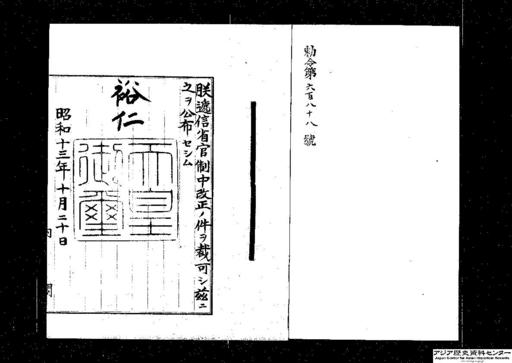 勅令第六百八十八號
朕遞信省官制中改正ノ件ヲ裁可シ茲ニ
之ヲ公布セシム
裕仁
天皇御璽
昭和十三年十月二十日
内閣
アジア歴史資料センター
Japan Center for Asian Historical Records